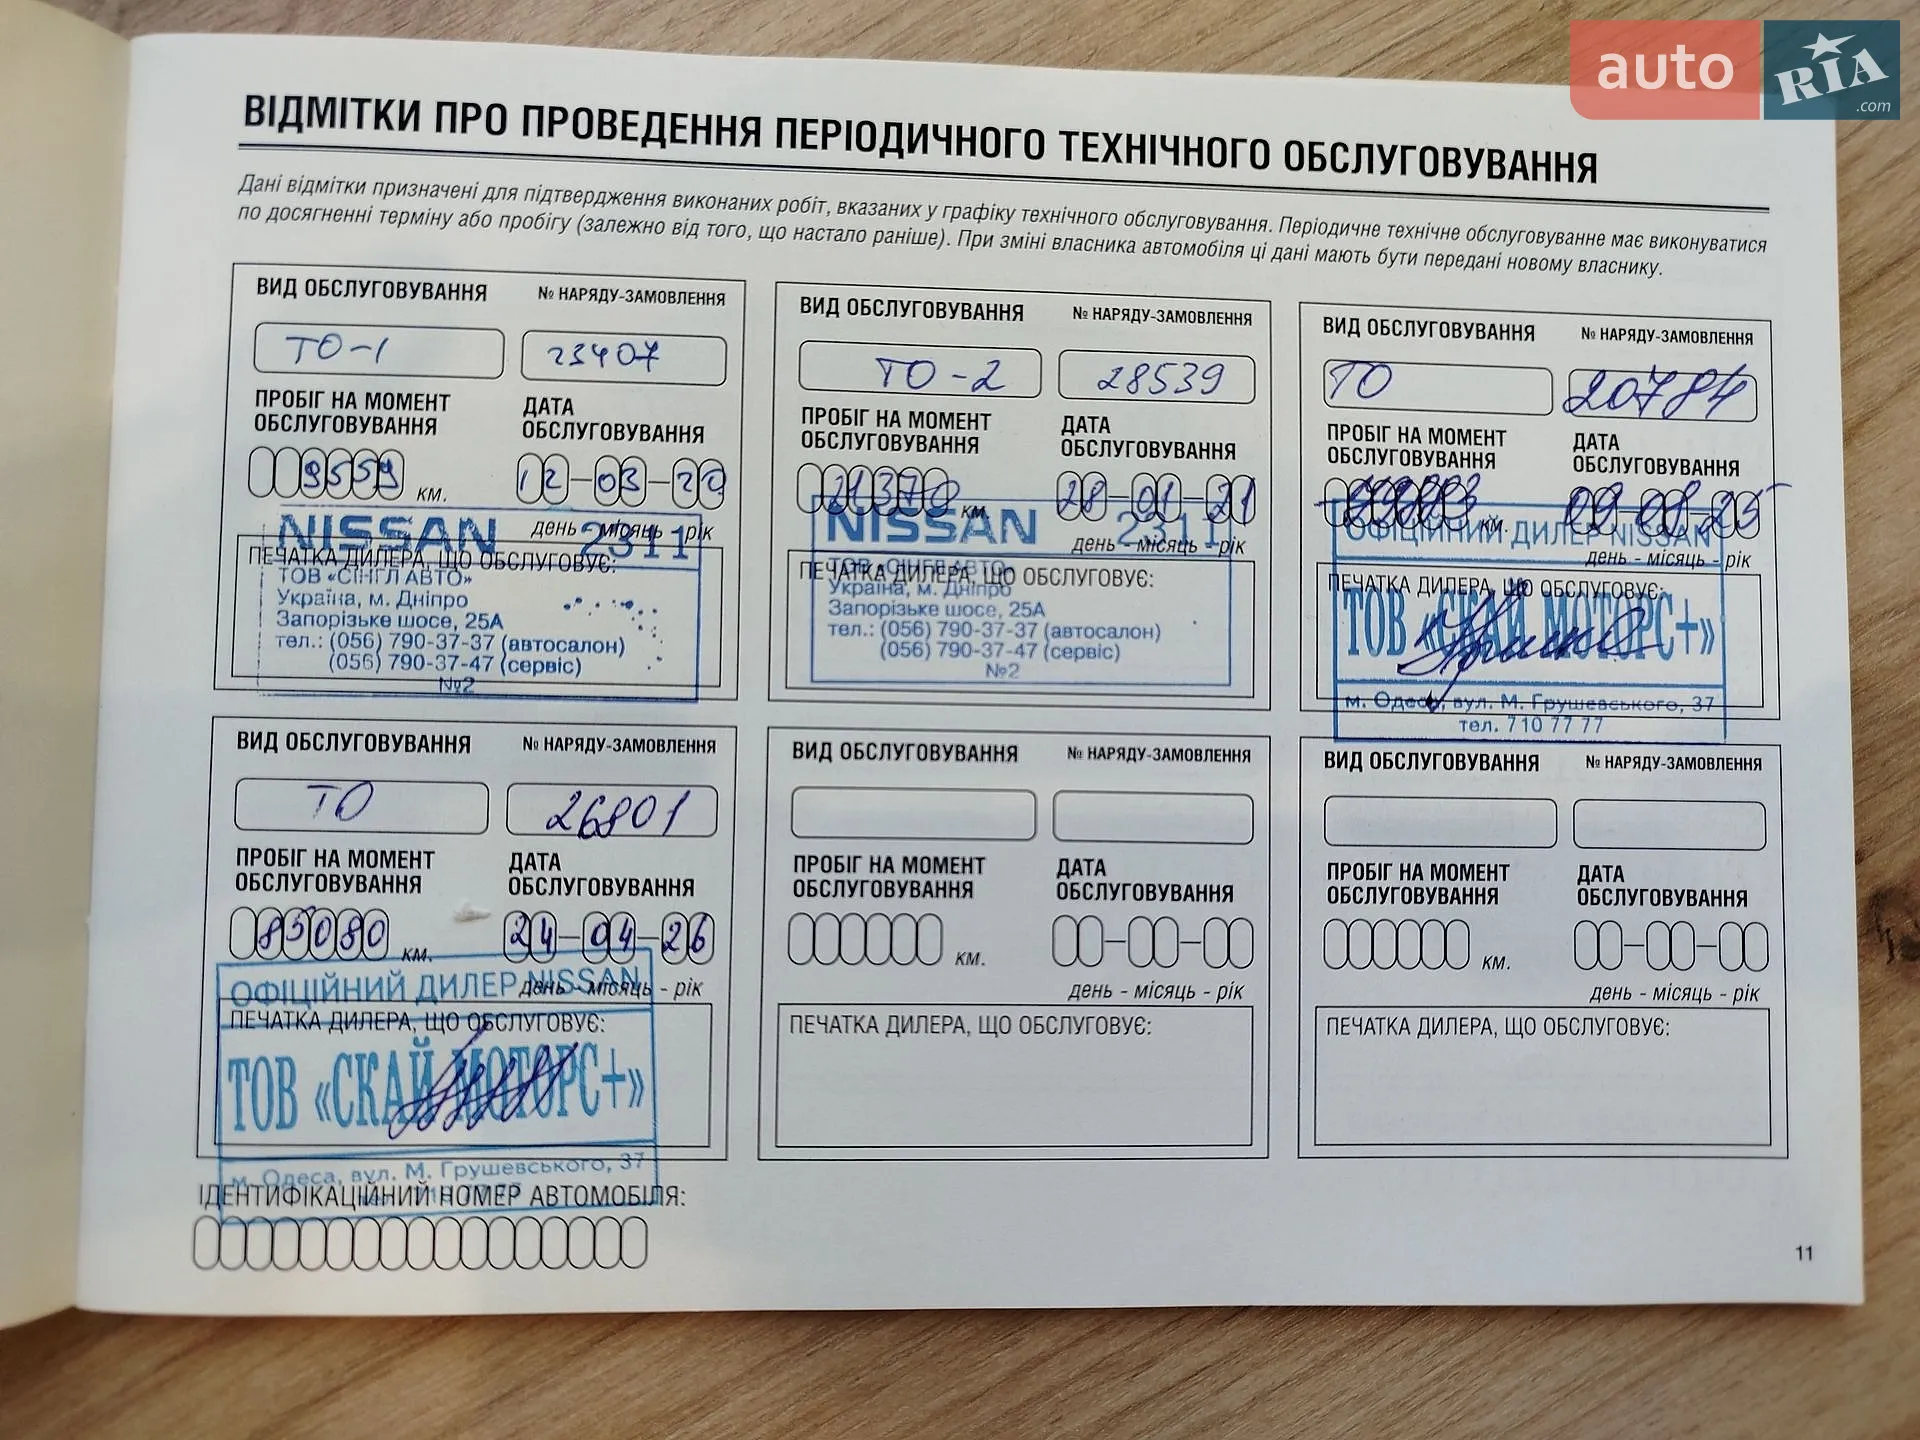 auto RIA .com
ВІДМІТКИ ПРО ПРОВЕДЕННЯ ПЕРІОДИЧНОГО ТЕХНІЧНОГО ОБСЛУГОВУВАННЯ
Дані відмітки призначені для підтвердження виконаних робіт, вказаних у графіку технічного обслуговування. Періодичне технічне обслуговуванне має виконуватися
по досягненні терміну або пробігу (залежно від того, що настало раніше). При зміні власника автомобіля ці дані мають бути передані новому власнику.
ВИД ОБСЛУГОВУВАННЯ № НАРЯДУ-ЗАМОВЛЕННЯ
ТО-1 23407
ПРОБІГ НА МОМЕНТ ОБСЛУГОВУВАННЯ
ДАТА ОБСЛУГОВУВАННЯ
9559 км. 12-03-20
день - місяць - рік
NISSAN 2311
ПЕЧАТКА ДИЛЕРА, ЩО ОБСЛУГОВУЄ:
ТОВ «СІНГЛ АВТО»
Україна, м. Дніпро
Запорізьке шосе, 25А
тел.: (056) 790-37-37 (автосалон)
(056) 790-37-47 (сервіс)
№2
ВИД ОБСЛУГОВУВАННЯ № НАРЯДУ-ЗАМОВЛЕННЯ
ТО-2 28539
ПРОБІГ НА МОМЕНТ ОБСЛУГОВУВАННЯ
ДАТА ОБСЛУГОВУВАННЯ
21370 км. 28-01-21
день - місяць - рік
NISSAN 2311
ПЕЧАТКА ДИЛЕРА, ЩО ОБСЛУГОВУЄ:
ТОВ «СІНГЛ АВТО»
Україна, м. Дніпро
Запорізьке шосе, 25А
тел.: (056) 790-37-37 (автосалон)
(056) 790-37-47 (сервіс)
№2
ВИД ОБСЛУГОВУВАННЯ № НАРЯДУ-ЗАМОВЛЕННЯ
ТО 20784
ПРОБІГ НА МОМЕНТ ОБСЛУГОВУВАННЯ
ДАТА ОБСЛУГОВУВАННЯ
км. 09-08-25
день - місяць - рік
ОФІЦІЙНИЙ ДИЛЕР NISSAN
ПЕЧАТКА ДИЛЕРА, ЩО ОБСЛУГОВУЄ:
ТОВ «СКАЙ МОТОРС+»
м. Одеса, вул. М. Грушевського, 37
тел. 710 77 77
ВИД ОБСЛУГОВУВАННЯ № НАРЯДУ-ЗАМОВЛЕННЯ
ТО 26801
ПРОБІГ НА МОМЕНТ ОБСЛУГОВУВАННЯ
ДАТА ОБСЛУГОВУВАННЯ
85080 км. 24-04-26
день - місяць - рік
ОФІЦІЙНИЙ ДИЛЕР NISSAN
ПЕЧАТКА ДИЛЕРА, ЩО ОБСЛУГОВУЄ:
ТОВ «СКАЙ МОТОРС+»
м. Одеса, вул. М. Грушевського, 37
ВИД ОБСЛУГОВУВАННЯ № НАРЯДУ-ЗАМОВЛЕННЯ
ПРОБІГ НА МОМЕНТ ОБСЛУГОВУВАННЯ
ДАТА ОБСЛУГОВУВАННЯ
км.
день - місяць - рік
ПЕЧАТКА ДИЛЕРА, ЩО ОБСЛУГОВУЄ:
ВИД ОБСЛУГОВУВАННЯ № НАРЯДУ-ЗАМОВЛЕННЯ
ПРОБІГ НА МОМЕНТ ОБСЛУГОВУВАННЯ
ДАТА ОБСЛУГОВУВАННЯ
км.
день - місяць - рік
ПЕЧАТКА ДИЛЕРА, ЩО ОБСЛУГОВУЄ:
ІДЕНТИФІКАЦІЙНИЙ НОМЕР АВТОМОБІЛЯ:
11